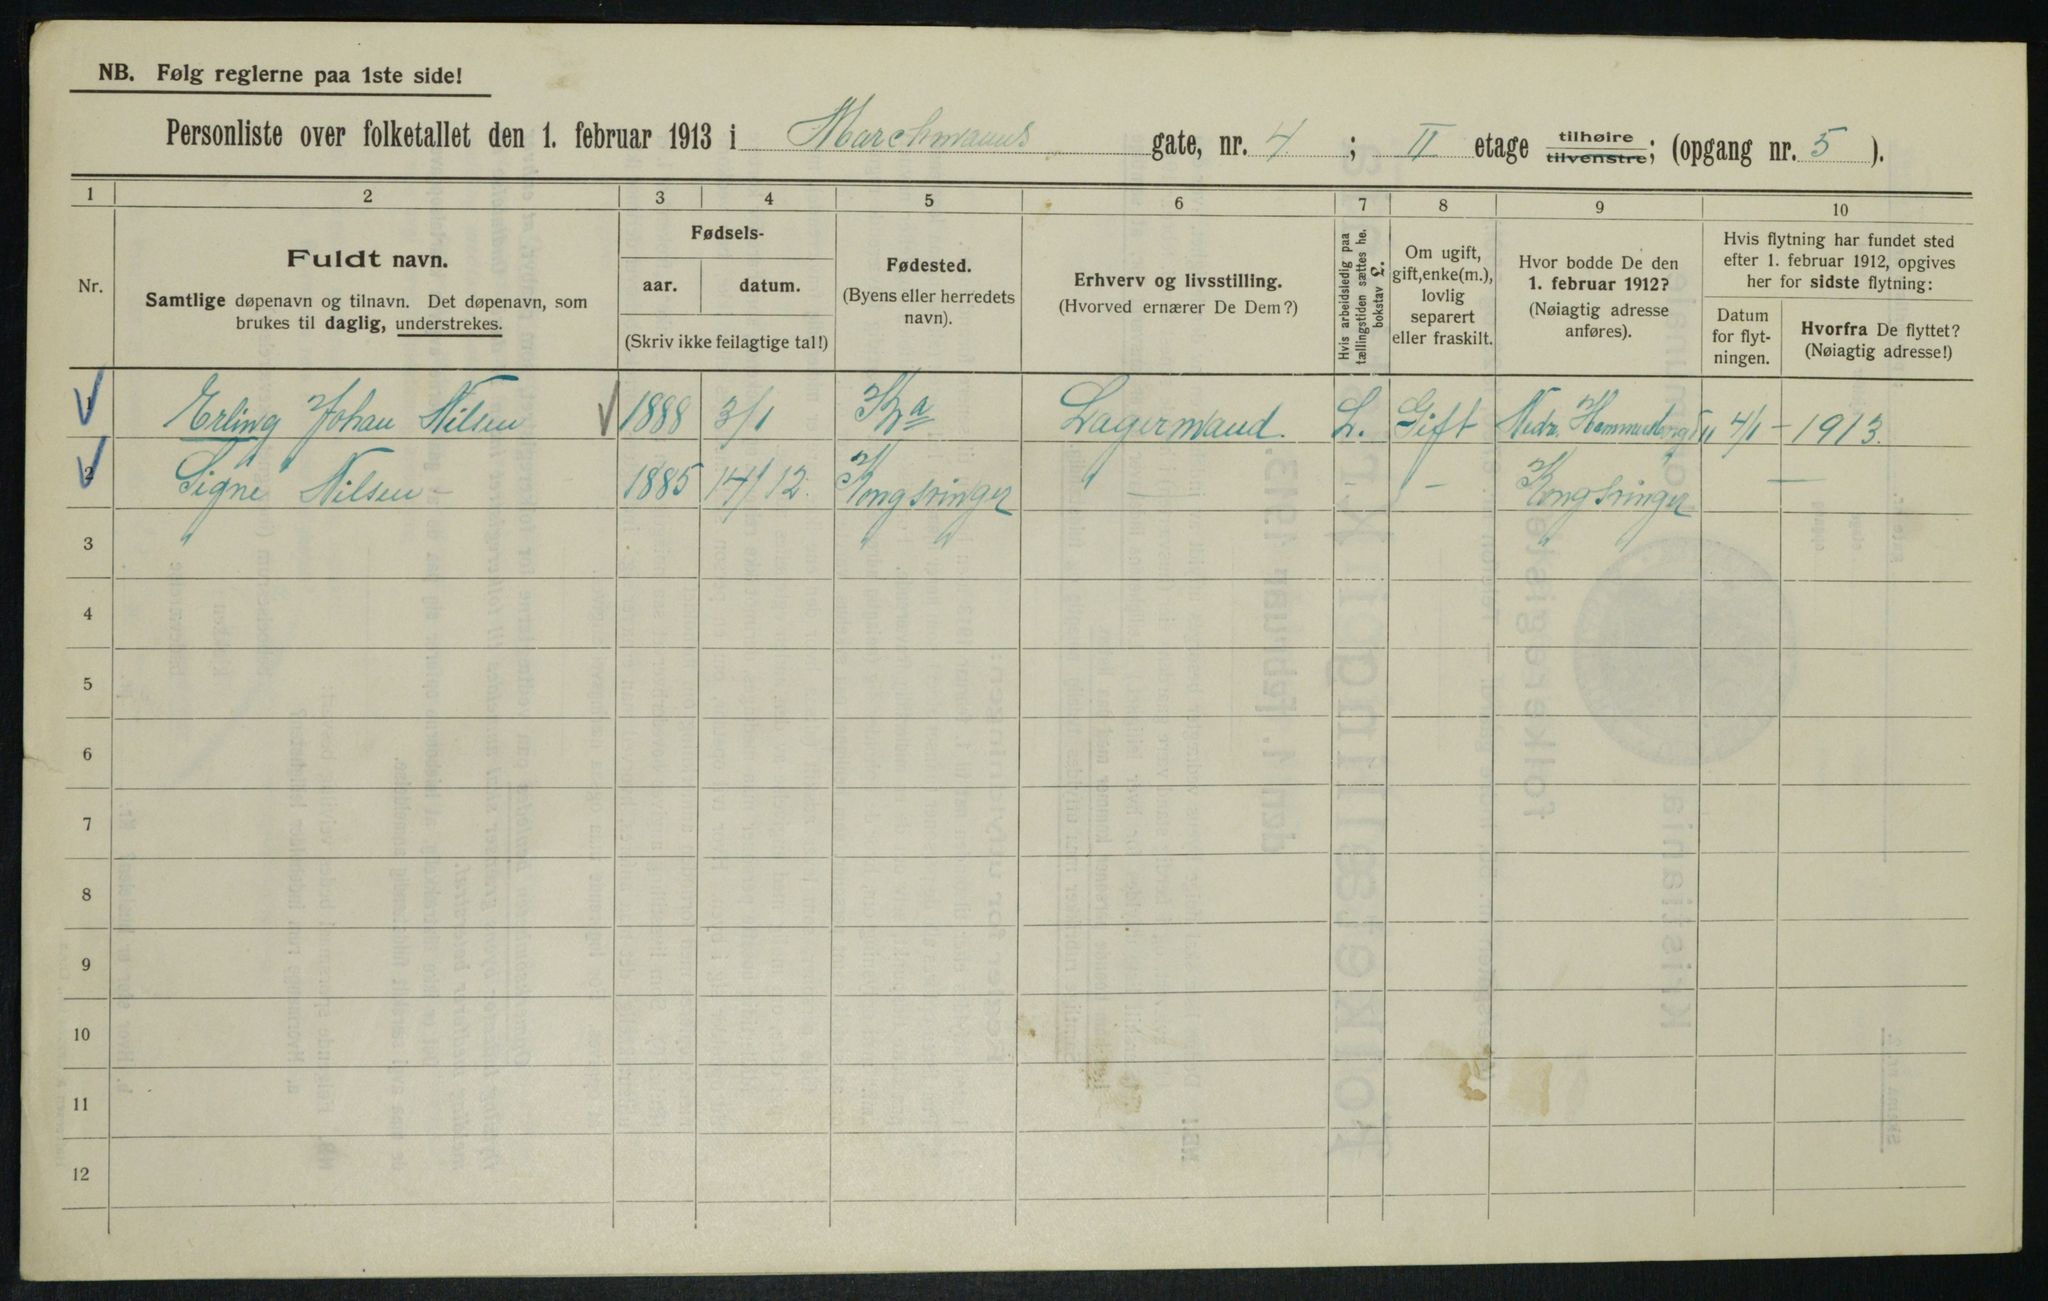 NB. Følg reglerne paa 1ste side!
Personliste over folketallet den 1. februar 1913 i Marckmanns gate, nr. 4 ; II etage tilhøire tilvenstre; (opgang nr. 5 ).
1 2 3 4 5 6 7 8 9 10
Nr.
Fuldt navn.
Samtlige døpenavn og tilnavn. Det døpenavn, som
brukes til daglig, understrekes.
Fødsels-
aar. datum.
(Skriv ikke feilagtige tal!)
Fødested.
(Byens eller herredets
navn).
Erhverv og livsstilling.
(Hvorved ernærer De Dem?)
Hvis arbeidsledig paa
tællingstiden sættes he.
bokstav L.
Om ugift,
gift, enke(m.),
lovlig
separert
eller fraskilt.
Hvor bodde De den
1. februar 1912?
(Nøiagtig adresse
anføres).
Hvis flytning har fundet sted
efter 1. februar 1912, opgives
her for sidste flytning:
Datum
for flyt-
ningen.
Hvorfra De flyttet?
(Nøiagtig adresse!)
1 Erling Johan Nilsen 1888 3/1 Kra Lagermand. L. Gift Nedr. 4/1 - 1913.
2 Signe Nilsen - 1885 14/12. Kongsvinger — - Kongsvinger —
3
4
5
6
7
8
9
10
11
12